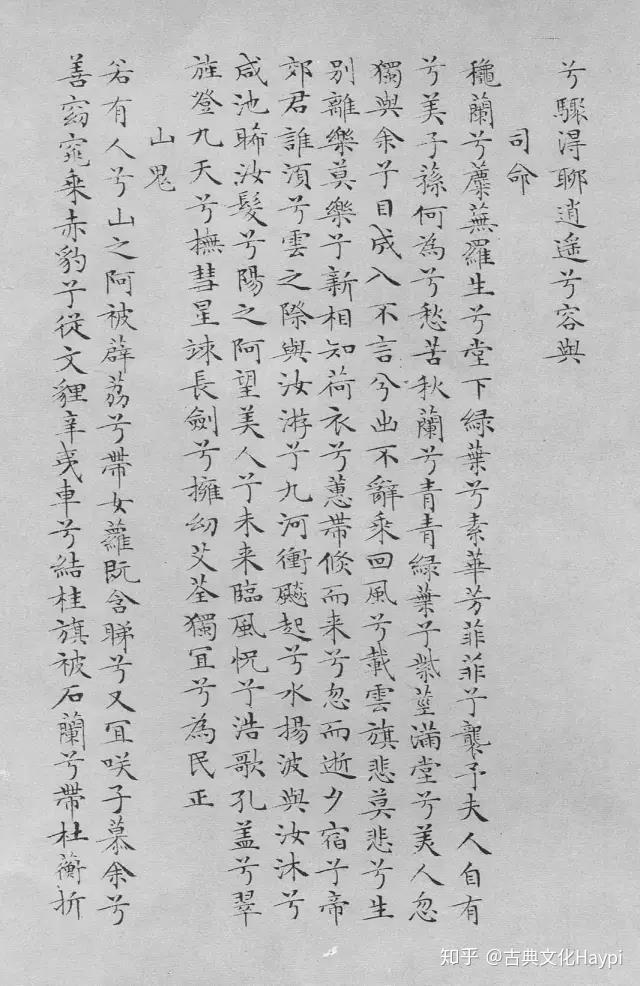 兮驟得聊逍遙兮容與
司命
穐蘭兮蘪蕪羅生兮堂下綠葉兮素華芳菲菲兮襲予夫人自有
兮美子蓀何為兮愁苦秋蘭兮青青綠葉兮紫莖滿堂兮美人忽
獨與余兮目成入不言兮出不辭乘回風兮載雲旗悲莫悲兮生
別離樂莫樂兮新相知荷衣兮蕙帶倏而来兮忽而逝夕宿兮帝
郊君誰須兮雲之際與汝游兮九河衝飈起兮水揚波與汝沐兮
咸池晞汝髮兮陽之阿望美人兮未来臨風怳兮浩歌孔盖兮翠
旌登九天兮撫彗星竦長劍兮擁幼艾荃獨冝兮為民正
山鬼
若有人兮山之阿被薜荔兮帶女蘿既含睇兮又冝咲子慕余兮
善窈窕乘赤豹兮從文貍辛夷車兮結桂旗被石蘭兮帶杜蘅折
知乎 @古典文化Haypi